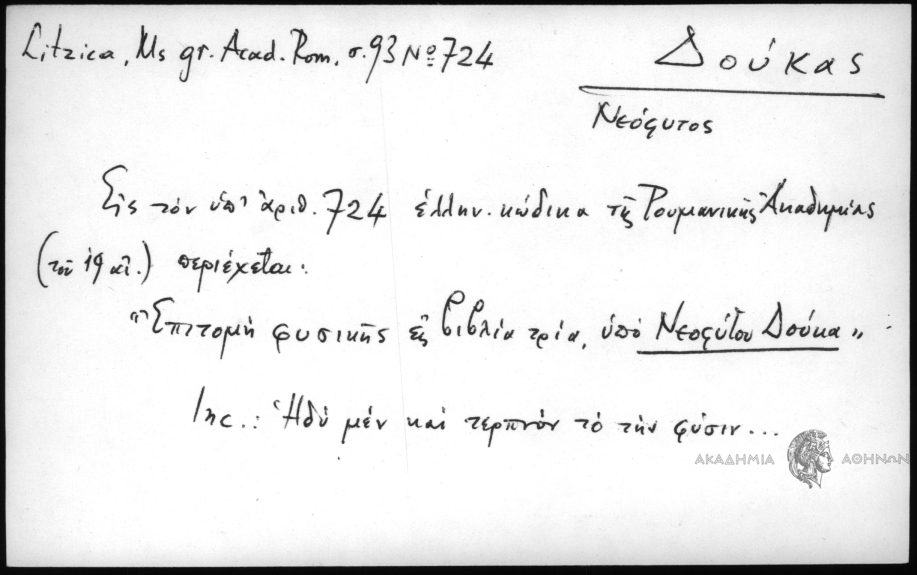 Litzica, Ms gr. Acad. Rom. σ. 93 Nº 724
Δούκας
Νεόφυτος
Εἰς τὸν ὑπ' ἀριθ. 724 ἑλλην. κώδικα τῆς Ρουμανικῆς Ἀκαδημίας
(τοῦ 19 αἰ.) περιέχεται:
"Ἐπιτομὴ φυσικῆς εἰς βιβλία τρία, ὑπὸ Νεοφύτου Δούκα".
Inc.: Ἡδὺ μὲν καὶ τερπνὸν τὸ τὴν φύσιν...
ΑΚΑΔΗΜΙΑ ΑΘΗΝΩΝ